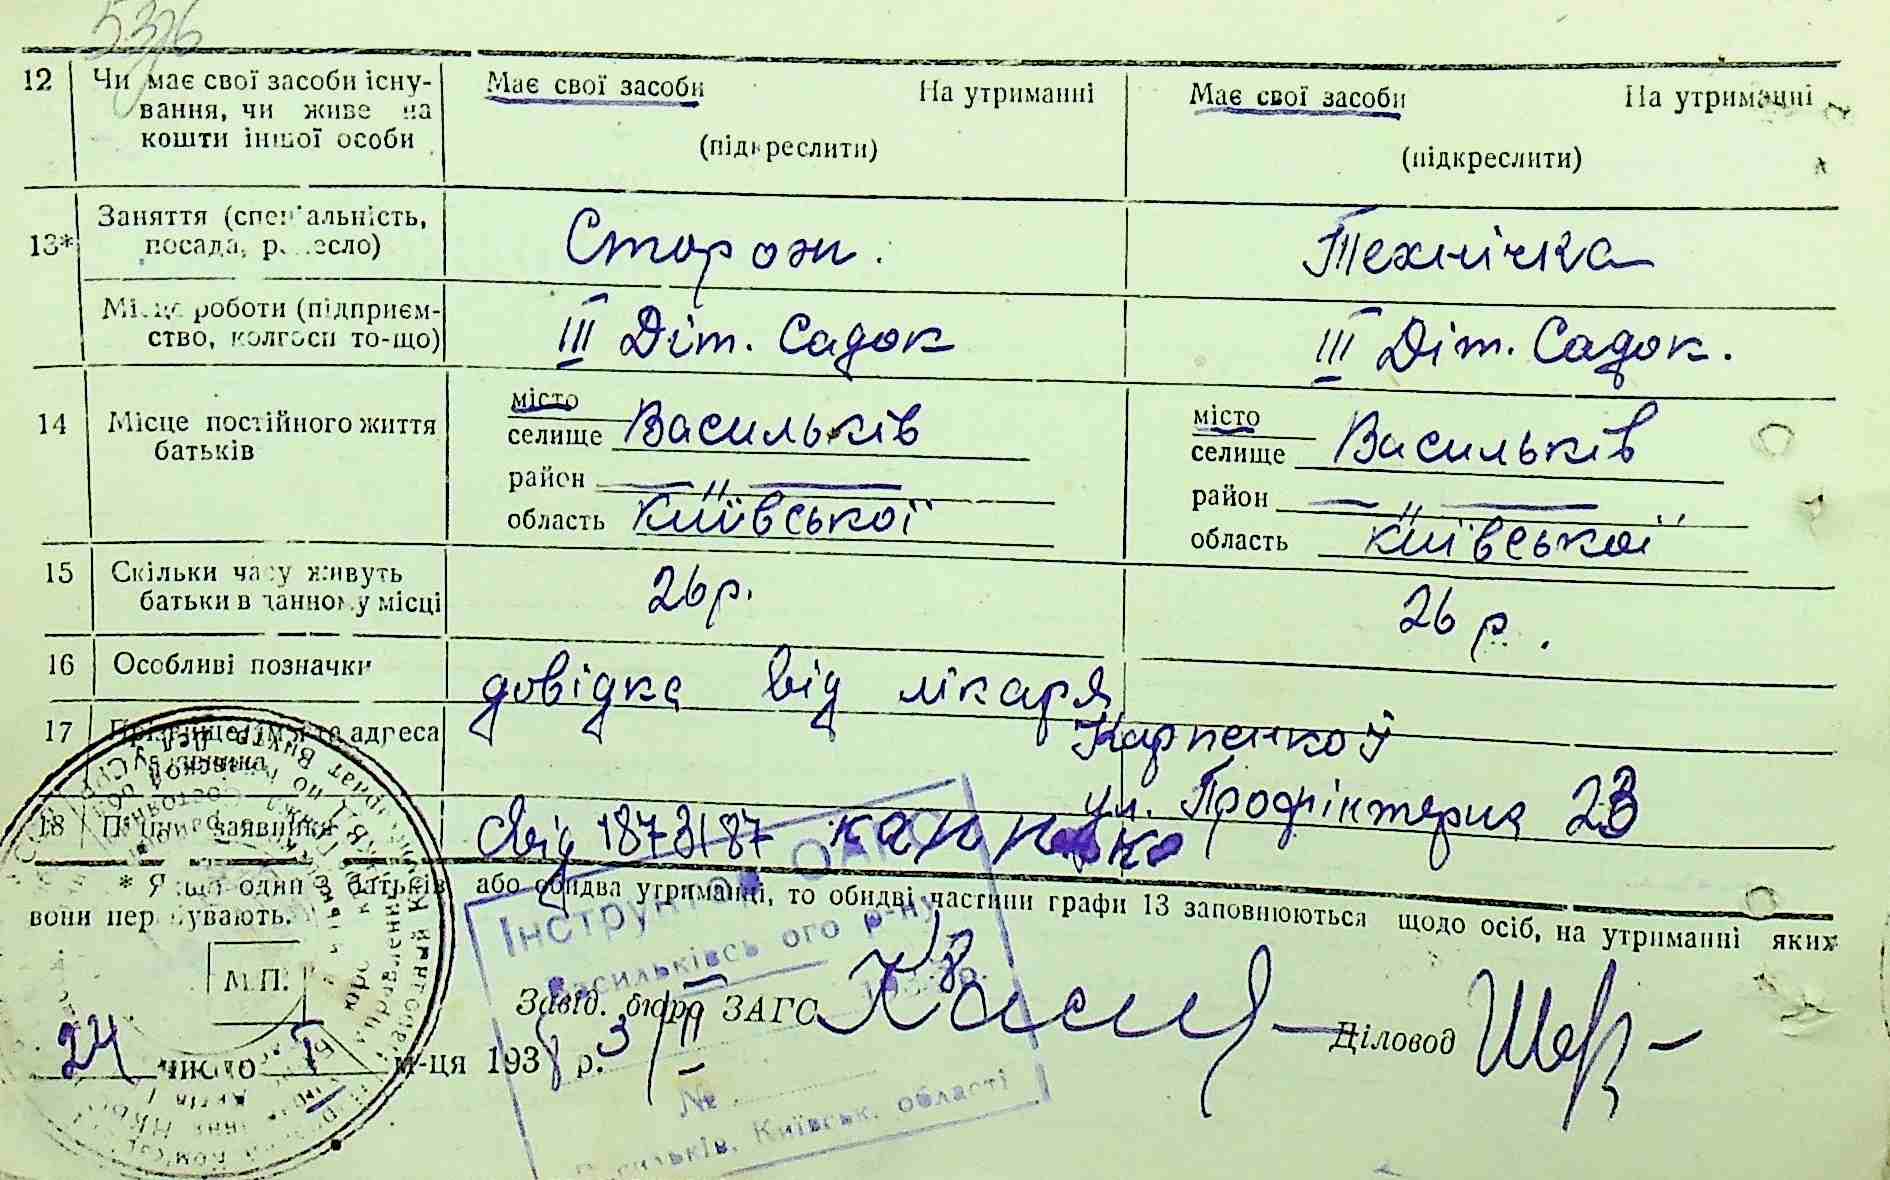 5376
12 Чи має свої засоби існу- Має свої засоби На утриманні Має свої засоби На утриманні
вання, чи живе на
кошти іншої особи (підкреслити) (підкреслити)
13* Заняття (спеціальність, Сторож. Технічка
посада, ремесло)
Місце роботи (підприєм- III Діт. Садок III Діт. Садок.
ство, колгосп то-що)
14 Місце постійного життя місто місто
батьків селище Васильків селище Васильків
район — " — район — " —
область Київської область Київської
15 Скільки часу живуть 26 р. 26 р.
батьки в данному місці
16 Особливі позначки довідка від лікаря
17 Прізвище, ім'я та адреса Карпенкої
ул. Профінтерна 23
18 Підпис заявника свід 1873187
* Якщо один з батьків або обидва утриманні, то обидві частини графи 13 заповнюються щодо осіб, на утриманні яких
вони перебувають.
Інструктор ОАГС
Васильківського р-ну
М.П.
Завід. бюро ЗАГС Діловод
24 число I м-ця 1938 р. 3/II
№
Васильків, Київськ. області